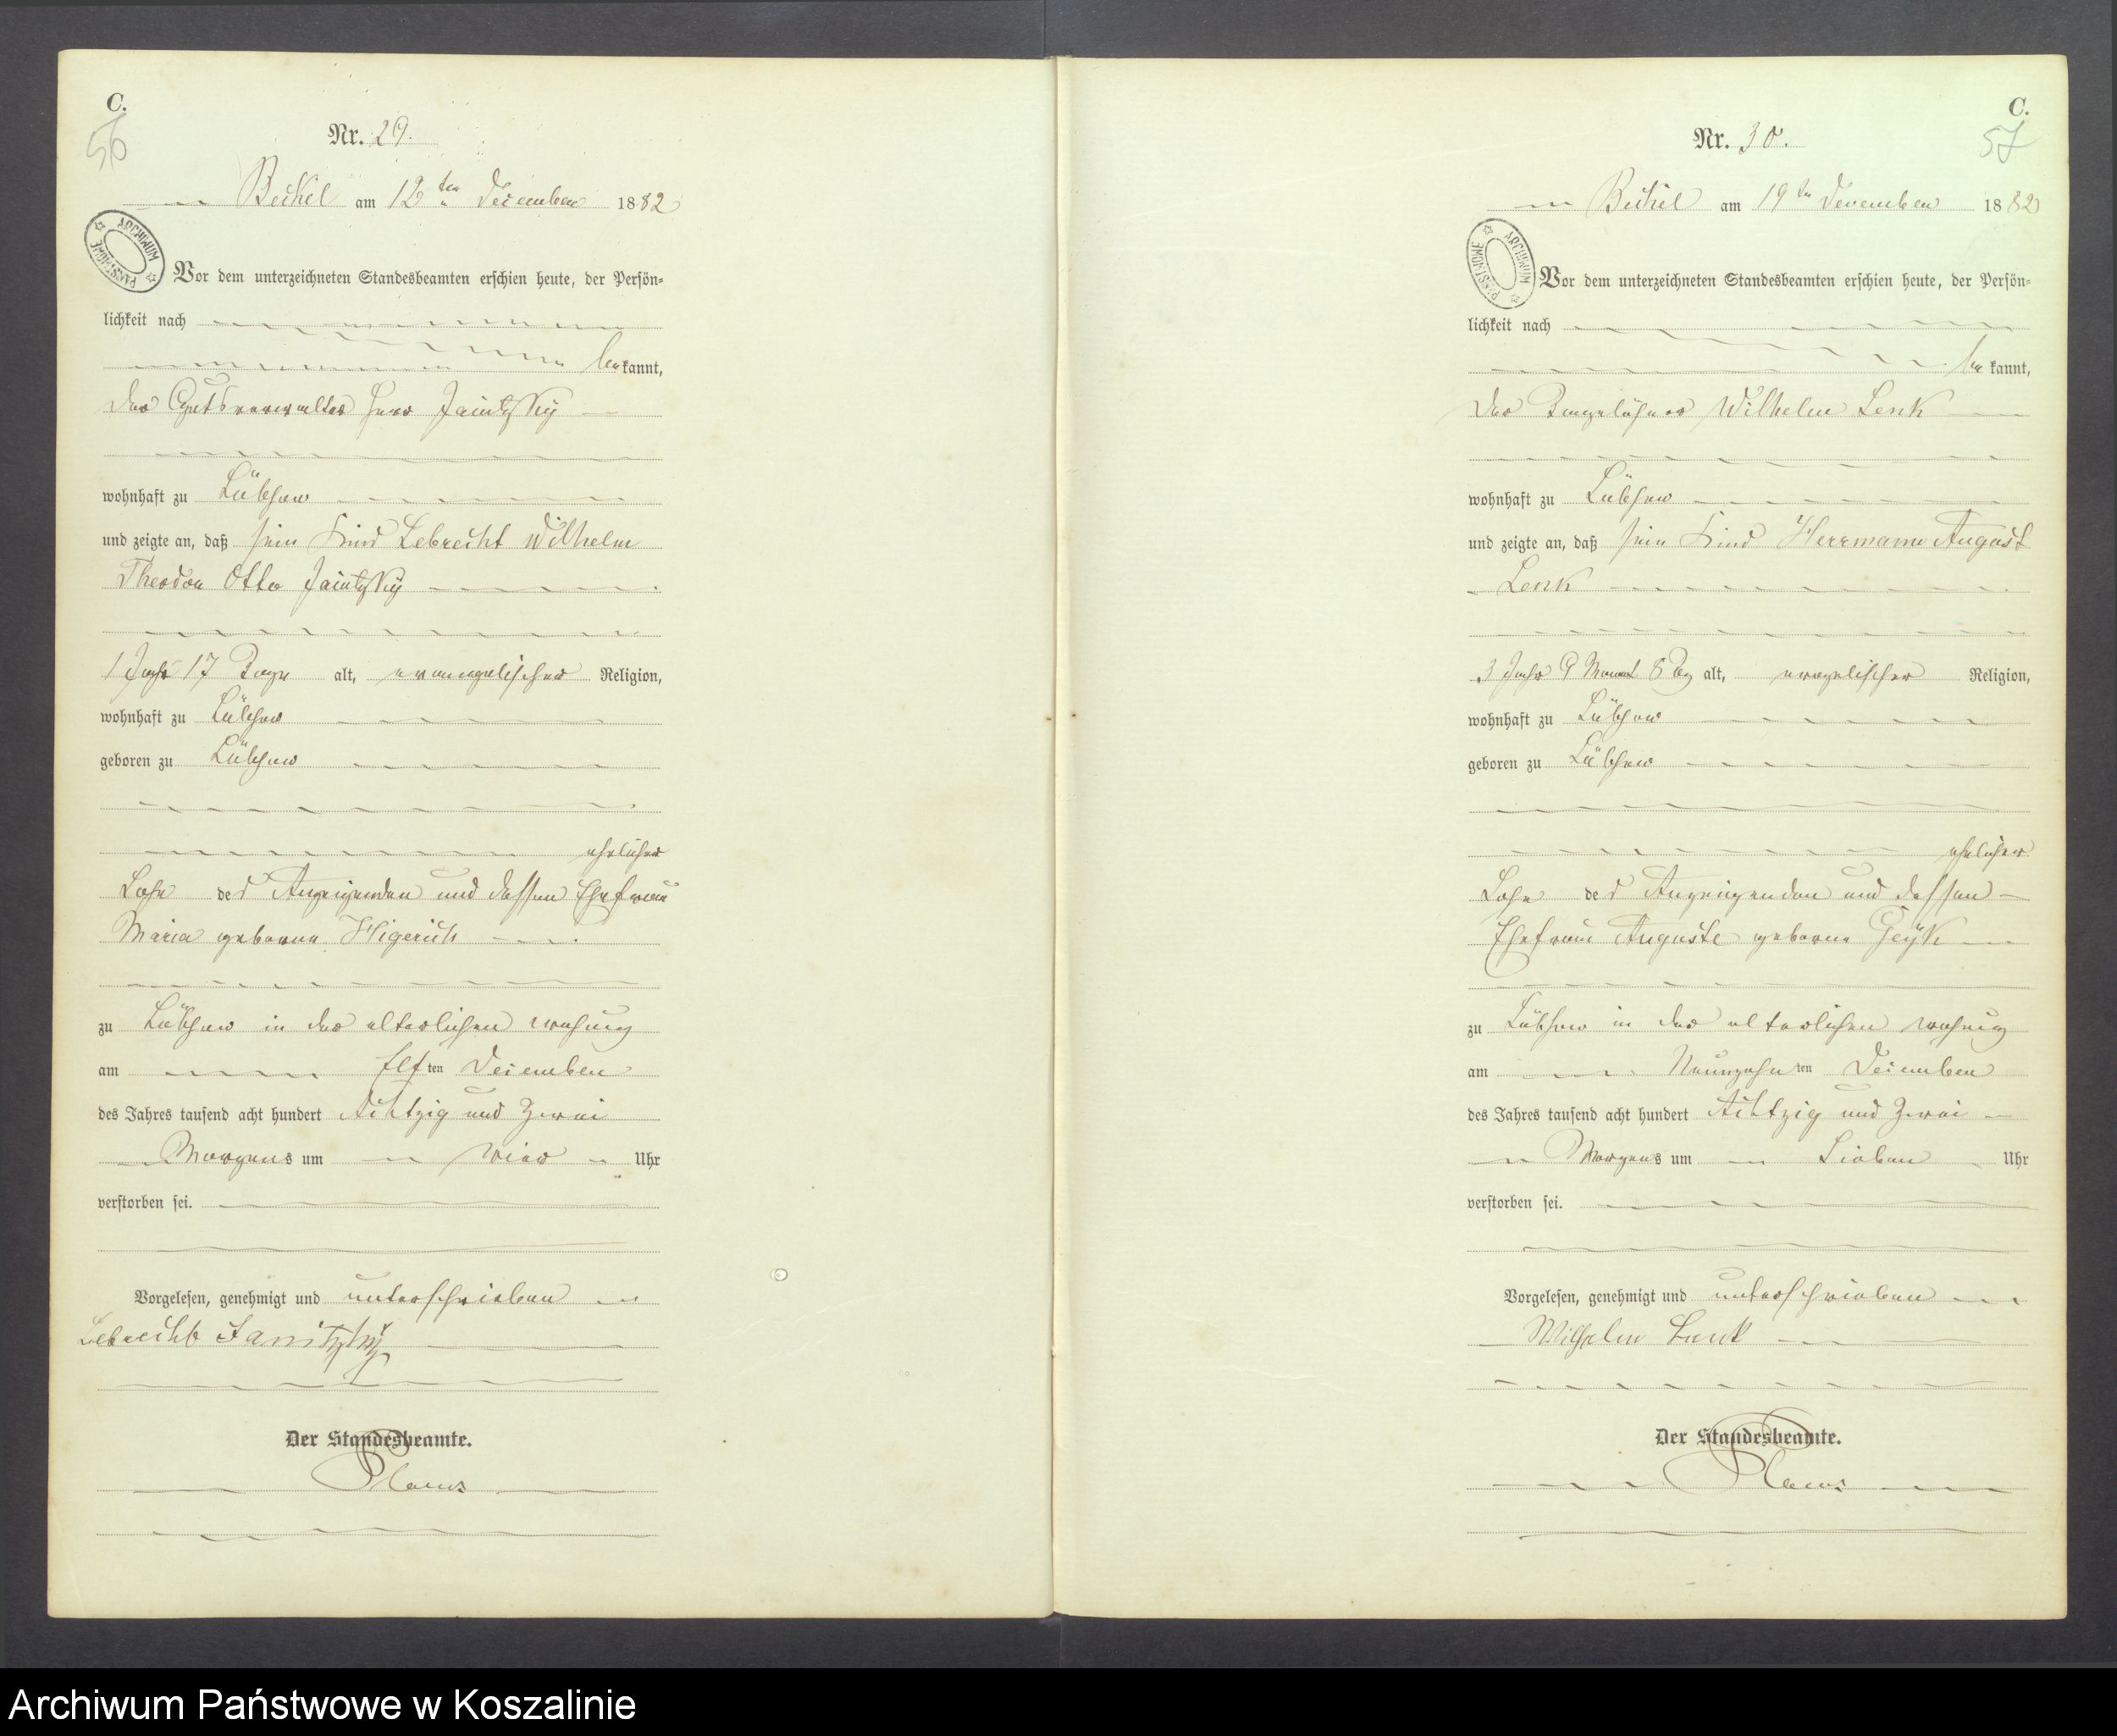 C.
56
Nr. 29.
Beckel am 12ten December 1882
ARCHIWUM PAŃSTWOWE
Vor dem unterzeichneten Standesbeamten erschien heute, der Persön-
lichkeit nach
bekannt,
der Gutsverwalter Herr
wohnhaft zu Lübchow
und zeigte an, daß sein Kind Lebrecht Wilhelm
Theodor Otto
1 Jahr 17 Tage alt, evangelischer Religion,
wohnhaft zu Lübchow
geboren zu Lübchow
ehelicher
Sohn des Anzeigenden und dessen Ehefrau
Maria geborne
zu Lübchow in der elterlichen Wohnung
am Elften December
des Jahres tausend acht hundert Achtzig und Zwei
Morgens um Vier Uhr
verstorben sei.
Vorgelesen, genehmigt und unterschrieben
Lebrecht
Der Standesbeamte.
C.
57
Nr. 30.
am 19ten December 1882
ARCHIWUM PAŃSTWOWE
Vor dem unterzeichneten Standesbeamten erschien heute, der Persön-
lichkeit nach
bekannt,
der Tagelöhner Wilhelm Lenk
wohnhaft zu Lübchow
und zeigte an, daß sein Kind Herrmann August
Lenk
3 Jahr 9 Monat 8 Tag alt, Religion,
wohnhaft zu Lübchow
geboren zu Lübchow
ehelicher
Sohn des Anzeigenden und dessen
Ehefrau Auguste geborne
zu Lübchow in der elterlichen Wohnung
am Neunzehnten December
des Jahres tausend acht hundert Achtzig und Zwei
Morgens um Sieben Uhr
verstorben sei.
Vorgelesen, genehmigt und unterschrieben
Wilhelm Lenk
Der Standesbeamte.
Archiwum Państwowe w Koszalinie